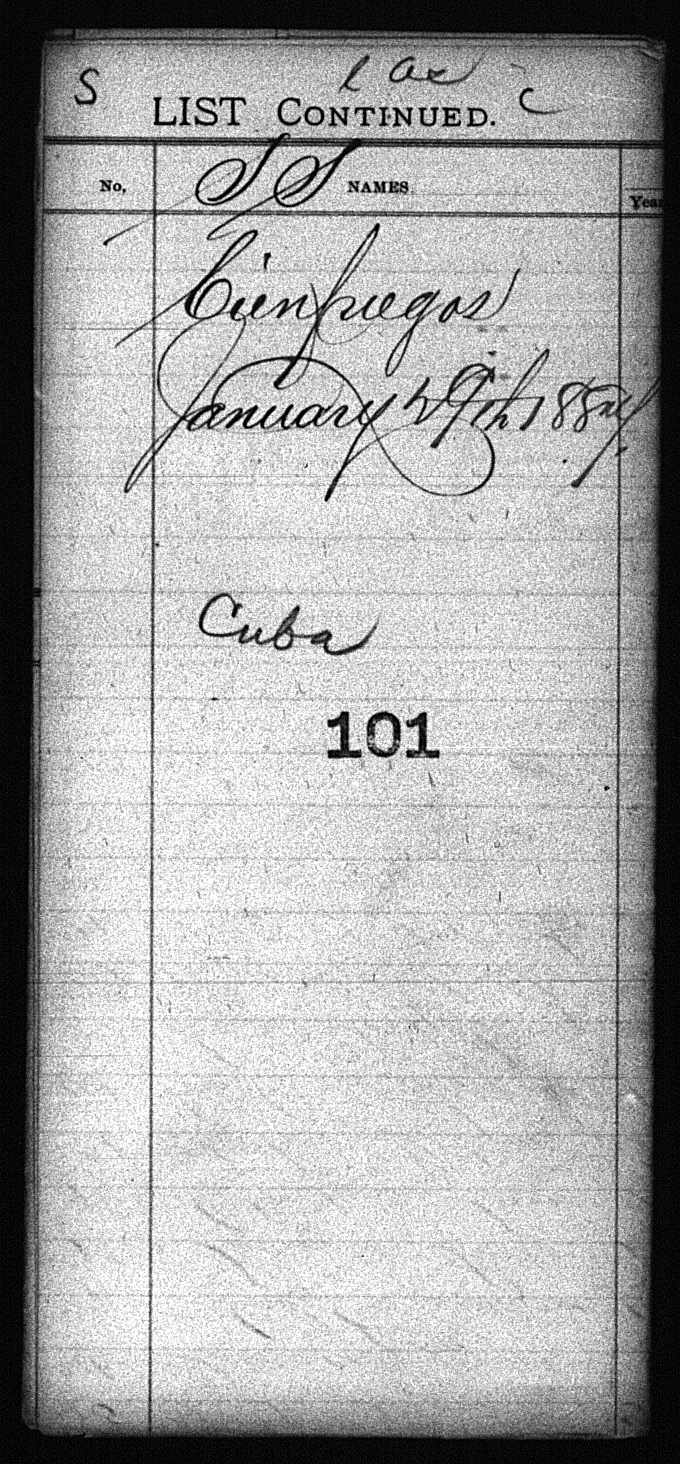 S
C
LIST CONTINUED.
No, SS NAMES Year
Cienfuegos
January 29th
Cuba
101